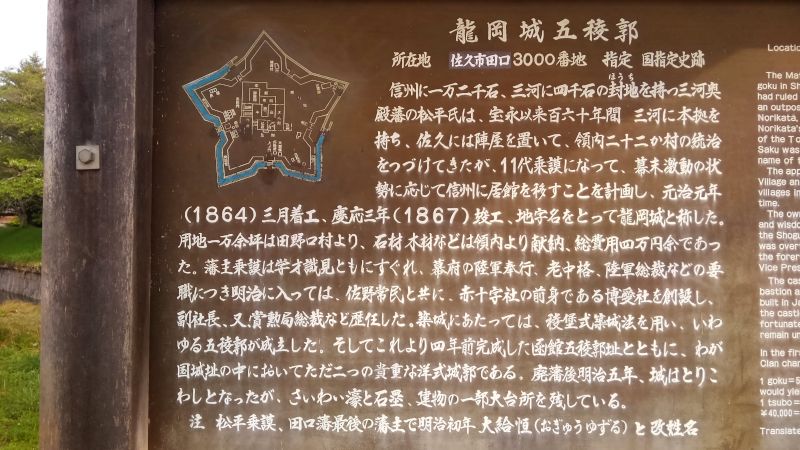 龍岡城五稜郭
所在地 佐久市田口3000番地 指定 国指定史跡
信州に一万二千石、三河に四千石の封地を持つ三河奥
ほうち
殿藩の松平氏は、宝永以来百六十年間 三河に本拠を
持ち、佐久には陣屋を置いて、領内二十二か村の統治
をつづけてきたが、11代乗謨になって、幕末激動の状
勢に応じて信州に居館を移すことを計画し、元治元年
(1864)三月着工、慶応三年(1867)竣工、地字名をとって龍岡城と称した。
用地一万余坪は田野口村より、石材木材などは領内より献納、総費用四万円余であっ
た。藩主乗謨は学才識見ともにすぐれ、幕府の陸軍奉行、老中格、陸軍総裁などの要
職につき明治に入っては、佐野常民と共に、赤十字社の前身である博愛社を創設し、
副社長、又賞勲局総裁など歴任した。築城にあたっては、稜堡式築城法を用い、いわ
ゆる五稜郭が成立した。そしてこれより四年前完成した函館五稜郭址とともに、わが
国城址の中においてただ二つの貴重な洋式城郭である。廃藩後明治五年、城はとりこ
わしとなったが、さいわい濠と石塁、建物の一部大台所を残している。
注 松平乗謨、田口藩最後の藩主で明治初年 大給恒(おぎゅうゆずる)と改姓名
Locatio
The Mat
goku in Sh
had ruled
an outpos
Norikata,
Norikata's
of the To
Saku was
name of t
The app
Village an
villages in
time.
The own
and wisdo
the Shogu
was over
the forer
Vice Pres
The cas
bastion a
built in Ja
the castl
fortunate
remain un
In the firs
Clan char
1 goku=5
would yie
1 tsubo=
¥40,000=
Translate